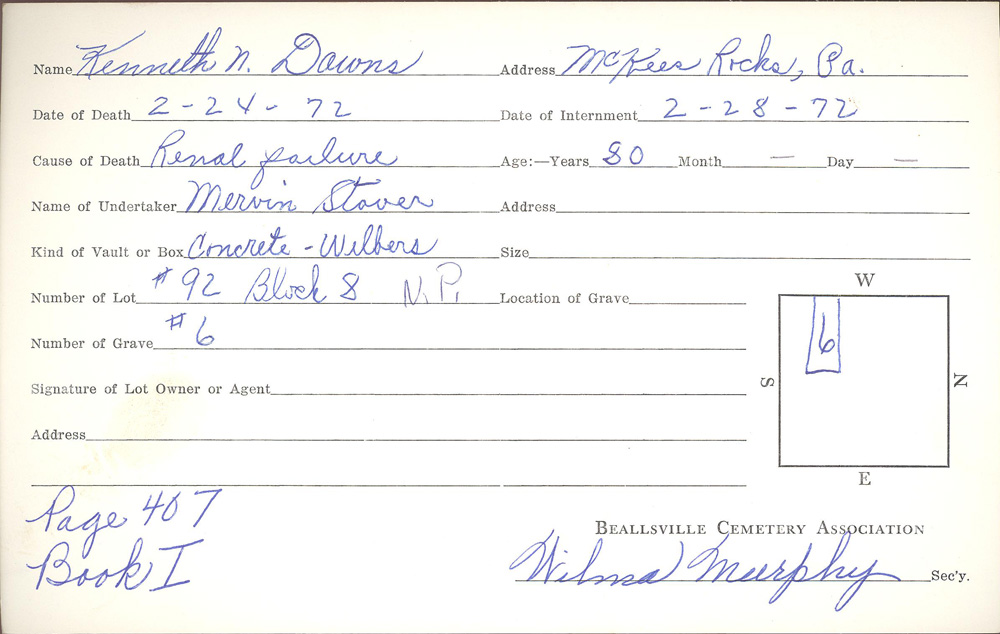 Name Kenneth N. Downs Address McKees Rocks, Pa.
Date of Death 2-24-72 Date of Internment 2-28-72
Cause of Death Renal failure Age:—Years 80 Month — Day —
Name of Undertaker Mervin Stover Address
Kind of Vault or Box Concrete - Wilbers Size
Number of Lot #92 Block 8 N.P. Location of Grave
Number of Grave #6
Signature of Lot Owner or Agent
Address
W
S
6
N
E
Page 407
Book I
Beallsville Cemetery Association
Wilma Murphy Sec'y.